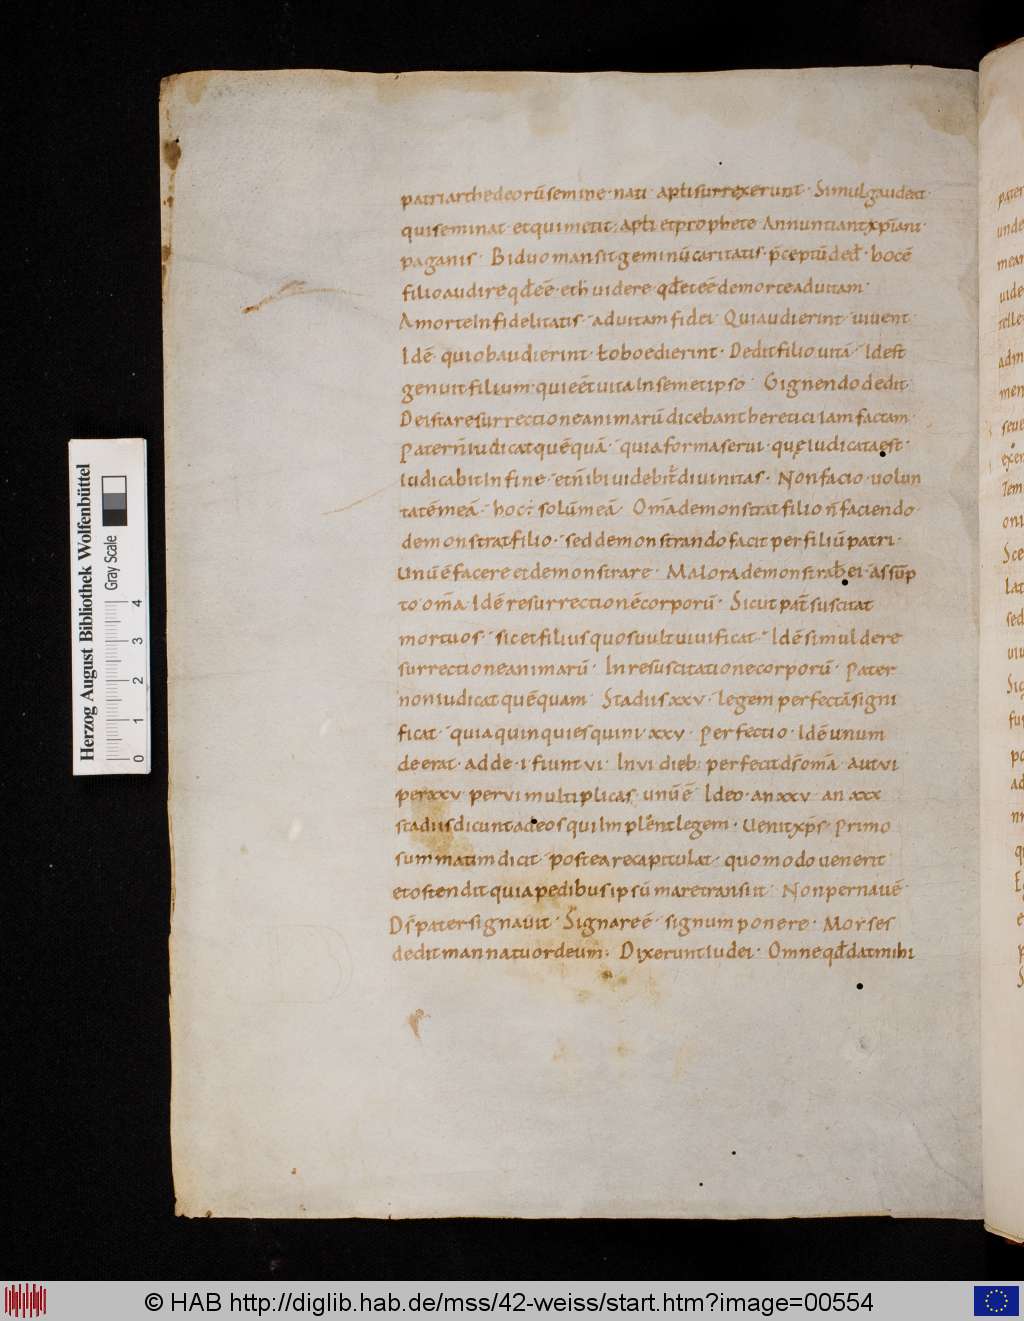 patriarche deorū semine · nati · apłi surrexerunt · Simul gaudeat ·
qui seminat · et qui metit · apłi et prophete Annuntiant xp̄iani ·
paganis · Biduo mansit geminū caritatis · p̄ceptū ded̄ · hoc ē
filio audire qđ eē · et h uidere · qđ et eē de morte ad uitam ·
A morte Infidelitatis · ad uitam fidei · Qui audierint · uiuent ·
Id ē · qui obaudierint · ł oboedierint · Dedit filio uitā · Id est
genuit filium · qui eēt uita In semetipso · Gignendo dedit ·
De ista resurrectione animarū dicebant heretici iam factam ·
Pater n̄ iudicat quēquā · quia forma serui · quę iudicata est ·
iudicabit In fine · et n̄ ibi uidebit̄ diuinitas · Non facio · uolun
tatē meā · hoc : solū meā · Om̄a demonstrat filio n̄ faciendo ·
demonstrat filio · sed demonstrando facit per filiū patri ·
unū ē facere et demonstrare · Maiora demonstrab ei · assūp
to om̄a · Id ē resurrectionē corporū · Sicut pat̄ suscitat
mortuos · sic et filius quos uult uiuificat · Id ē simul de re
surrectione animarū · In resuscitatione corporū · Pater
non iudicat quēquam · Stadiis xxv · legem perfectā signi
ficat · quia quinquies quini · xxv · Perfectio · Id ē unum
deerat · adde · i · fiunt vi · In vi dieb; perfecit dš om̄a · aut vi
per xxv · per vi multiplicas · unū ē · Ideo · an xxv · an xxx
stadiis dicunt adeos qui Implent legem · Uenit xp̄s · Primo
summatim dicit · postea recapitulat · quomodo uenerit
et ostendit quia pedibus ipsū mare transiit · Non per nauē ·
Dš pater signauit · Signare ē · signum ponere · Moyses
dedit manna tu ordeum · Dixerunt iudei · Omne qđ dat mihi
Herzog August Bibliothek Wolfenbüttel
Gray Scale
0 1 2 3 4
© HAB http://diglib.hab.de/mss/42-weiss/start.htm?image=00554